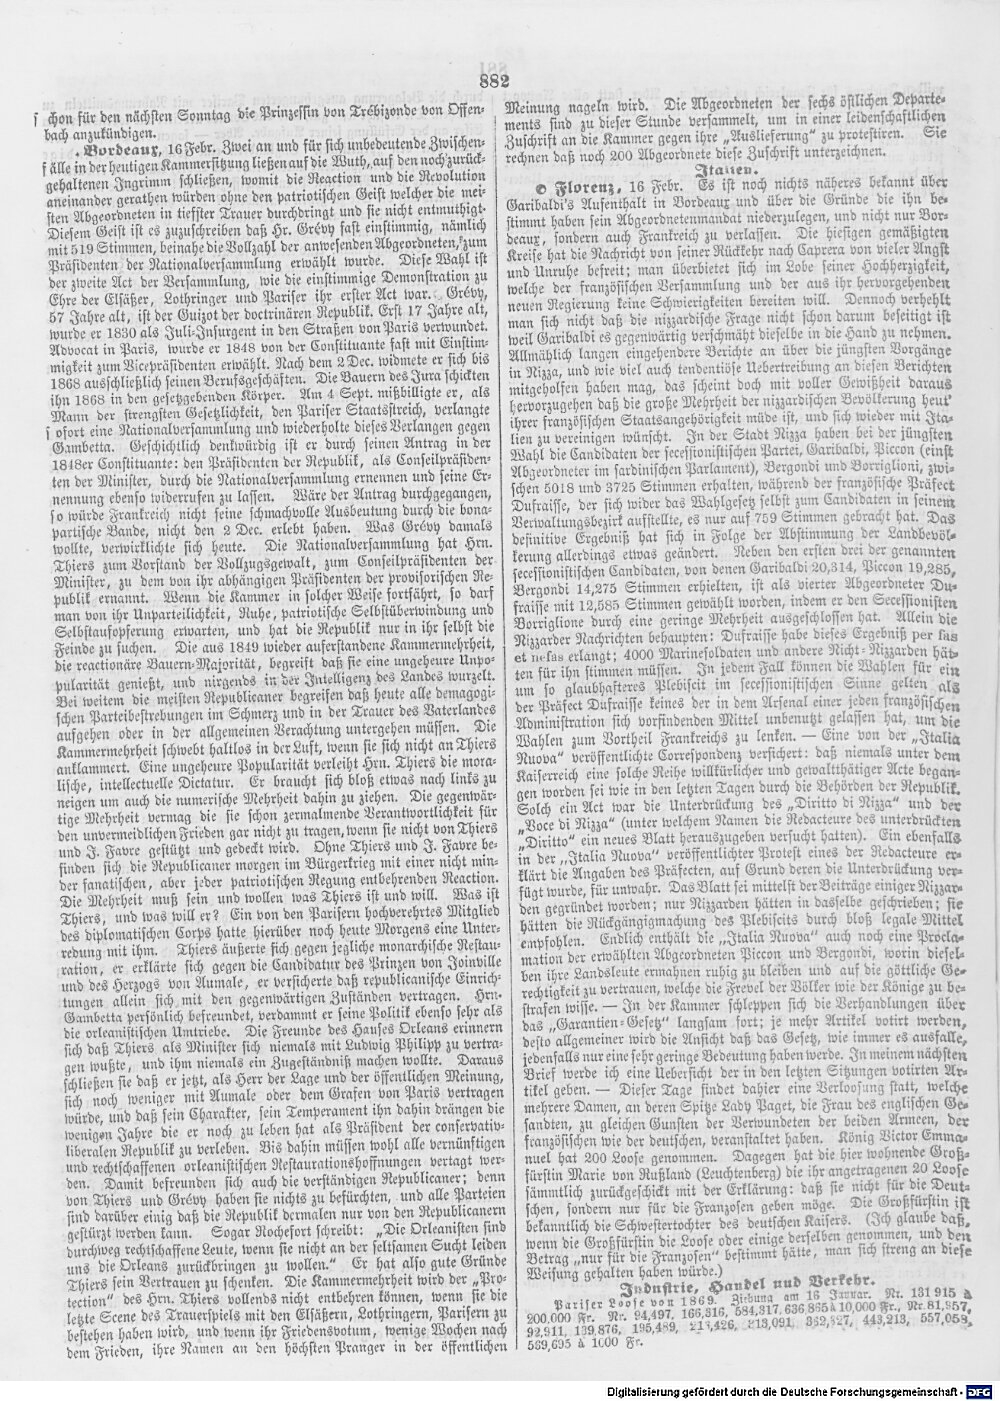 882
schon für den nächsten Sonntag die Prinzessin von Trébizonde von Offen-
bach anzukündigen.
Bordeaux, 16 Febr. Zwei an und für sich unbedeutende Zwischen-
fälle in der heutigen Kammersitzung ließen auf die Wuth, auf den noch zurück-
gehaltenen Ingrimm schließen, womit die Reaction und die Revolution
aneinander gerathen würden ohne den patriotischen Geist welcher die mei-
sten Abgeordneten in tiefster Trauer durchdringt und sie nicht entmuthigt.
Diesem Geist ist es zuzuschreiben daß Hr. Grévy fast einstimmig, nämlich
mit 519 Stimmen, beinahe die Vollzahl der anwesenden Abgeordneten, zum
Präsidenten der Nationalversammlung erwählt wurde. Diese Wahl ist
der zweite Act der Versammlung, wie die einstimmige Demonstration zu
Ehre der Elsäßer, Lothringer und Pariser ihr erster Act war. Grévy,
57 Jahre alt, ist der Guizot der doctrinären Republik. Erst 17 Jahre alt,
wurde er 1830 als Juli-Insurgent in den Straßen von Paris verwundet.
Advocat in Paris, wurde er 1848 von der Constituante fast mit Einstim-
migkeit zum Vicepräsidenten erwählt. Nach dem 2 Dec. widmete er sich bis
1868 ausschließlich seinen Berufsgeschäften. Die Bauern des Jura schickten
ihn 1868 in den gesetzgebenden Körper. Am 4 Sept. mißbilligte er, als
Mann der strengsten Gesetzlichkeit, den Pariser Staatsstreich, verlangte
sofort eine Nationalversammlung und wiederholte dieses Verlangen gegen
Gambetta. Geschichtlich denkwürdig ist er durch seinen Antrag in der
1848er Constituante: den Präsidenten der Republik, als Conseilpräsiden-
ten der Minister, durch die Nationalversammlung ernennen und seine Er-
nennung ebenso widerrufen zu lassen. Wäre der Antrag durchgegangen,
so würde Frankreich nicht seine schmachvolle Ausbeutung durch die bona-
partische Bande, nicht den 2 Dec. erlebt haben. Was Grévy damals
wollte, verwirklichte sich heute. Die Nationalversammlung hat Hrn.
Thiers zum Vorstand der Vollzugsgewalt, zum Conseilpräsidenten der
Minister, zu dem von ihr abhängigen Präsidenten der provisorischen Re-
publik ernannt. Wenn die Kammer in solcher Weise fortfährt, so darf
man von ihr Unparteilichkeit, Ruhe, patriotische Selbstüberwindung und
Selbstaufopferung erwarten, und hat die Republik nur in ihr selbst die
Feinde zu suchen. Die aus 1849 wieder auferstandene Kammermehrheit,
die reactionäre Bauern-Majorität, begreift daß sie eine ungeheure Unpo-
pularität genießt, und nirgends in der Intelligenz des Landes wurzelt.
Bei weitem die meisten Republicaner begreifen daß heute alle demagogi-
schen Parteibestrebungen im Schmerz und in der Trauer des Vaterlandes
aufgehen oder in der allgemeinen Verachtung untergehen müssen. Die
Kammermehrheit schwebt haltlos in der Luft, wenn sie sich nicht an Thiers
anklammert. Eine ungeheure Popularität verleiht Hrn. Thiers die mora-
lische, intellectuelle Dictatur. Er braucht sich bloß etwas nach links zu
neigen um auch die numerische Mehrheit dahin zu ziehen. Die gegenwär-
tige Mehrheit vermag die sie schon zermalmende Verantwortlichkeit für
den unvermeidlichen Frieden gar nicht zu tragen, wenn sie nicht von Thiers
und J. Favre gestützt und gedeckt wird. Ohne Thiers und J. Favre be-
finden sich die Republicaner morgen im Bürgerkrieg mit einer nicht min-
der fanatischen, aber jeder patriotischen Regung entbehrenden Reaction.
Die Mehrheit muß sein und wollen was Thiers ist und will. Was ist
Thiers, und was will er? Ein von den Parisern hochverehrtes Mitglied
des diplomatischen Corps hatte hierüber noch heute Morgens eine Unter-
redung mit ihm. Thiers äußerte sich gegen jegliche monarchische Restau-
ration, er erklärte sich gegen die Candidatur des Prinzen von Joinville
und des Herzogs von Aumale, er versicherte daß republicanische Einrich-
tungen allein sich mit den gegenwärtigen Zuständen vertragen. Hrn.
Gambetta persönlich befreundet, verdammt er seine Politik ebenso sehr als
die orleanistischen Umtriebe. Die Freunde des Hauses Orleans erinnern
sich daß Thiers als Minister sich niemals mit Ludwig Philipp zu vertra-
gen wußte, und ihm niemals ein Zugeständniß machen wollte. Daraus
schließen sie daß er jetzt, als Herr der Lage und der öffentlichen Meinung,
sich noch weniger mit Aumale oder dem Grafen von Paris vertragen
würde, und daß sein Charakter, sein Temperament ihn dahin drängen die
wenigen Jahre die er noch zu leben hat als Präsident der conservativ-
liberalen Republik zu verleben. Bis dahin müssen wohl alle vernünftigen
und rechtschaffenen orleanistischen Restaurationshoffnungen vertagt wer-
den. Damit befreunden sich auch die verständigen Republicaner; denn
von Thiers und Grévy haben sie nichts zu befürchten, und alle Parteien
sind darüber einig daß die Republik dermalen nur von den Republicanern
gestürzt werden kann. Sogar Rochefort schreibt: „Die Orleanisten sind
durchweg rechtschaffene Leute, wenn sie nicht an der seltsamen Sucht leiden
uns die Orleans zurückbringen zu wollen.“ Er hat also gute Gründe
Thiers sein Vertrauen zu schenken. Die Kammermehrheit wird der „Pro-
tection“ des Hrn. Thiers vollends nicht entbehren können, wenn sie die
letzte Scene des Trauerspiels mit den Elsäßern, Lothringern, Parisern zu
bestehen haben wird, und wenn ihr Friedensvotum, wenige Wochen nach
dem Frieden, ihre Namen an den höchsten Pranger in der öffentlichen
Meinung nageln wird. Die Abgeordneten der sechs östlichen Departe-
ments sind zu dieser Stunde versammelt, um in einer leidenschaftlichen
Zuschrift an die Kammer gegen ihre „Auslieferung“ zu protestiren. Sie
rechnen daß noch 200 Abgeordnete diese Zuschrift unterzeichnen.
Italien.
Florenz, 16 Febr. Es ist noch nichts näheres bekannt über
Garibaldi's Aufenthalt in Bordeaux und über die Gründe die ihn be-
stimmt haben sein Abgeordnetenmandat niederzulegen, und nicht nur Bor-
deaux, sondern auch Frankreich zu verlassen. Die hiesigen gemäßigten
Kreise hat die Nachricht von seiner Rückkehr nach Caprera von vieler Angst
und Unruhe befreit; man überbietet sich im Lobe seiner Hochherzigkeit,
welche der französischen Versammlung und der aus ihr hervorgehenden
neuen Regierung keine Schwierigkeiten bereiten will. Dennoch verhehlt
man sich nicht daß die nizzardische Frage nicht schon darum beseitigt ist
weil Garibaldi es gegenwärtig verschmäht dieselbe in die Hand zu nehmen.
Allmählich langen eingehendere Berichte an über die jüngsten Vorgänge
in Nizza, und wie viel auch tendentiöse Uebertreibung an diesen Berichten
mitgeholfen haben mag, das scheint doch mit voller Gewißheit daraus
hervorzugehen daß die große Mehrheit der nizzardischen Bevölkerung heut'
ihrer französischen Staatsangehörigkeit müde ist, und sich wieder mit Ita-
lien zu vereinigen wünscht. In der Stadt Nizza haben bei der jüngsten
Wahl die Candidaten der secessionistischen Partei, Garibaldi, Piccon (einst
Abgeordneter im sardinischen Parlament), Bergondi und Borriglioni, zwi-
schen 5018 und 3725 Stimmen erhalten, während der französische Präfect
Dufraisse, der sich wider das Wahlgesetz selbst zum Candidaten in seinem
Verwaltungsbezirk aufstellte, es nur auf 759 Stimmen gebracht hat. Das
definitive Ergebniß hat sich in Folge der Abstimmung der Landbevöl-
kerung allerdings etwas geändert. Neben den ersten drei der genannten
secessionistischen Candidaten, von denen Garibaldi 20,314, Piccon 19,285,
Bergondi 14,275 Stimmen erhielten, ist als vierter Abgeordneter Du-
fraisse mit 12,585 Stimmen gewählt worden, indem er den Secessionisten
Borriglione durch eine geringe Mehrheit ausgeschlossen hat. Allein die
Nizzarder Nachrichten behaupten: Dufraisse habe dieses Ergebniß per fas
et nefas erlangt; 4000 Marinesoldaten und andere Nicht-Nizzarden hät-
ten für ihn stimmen müssen. In jedem Fall können die Wahlen für ein
um so glaubhafteres Plebiscit im secessionistischen Sinne gelten als
der Präfect Dufraisse keines der in dem Arsenal einer jeden französischen
Administration sich vorfindenden Mittel unbenutzt gelassen hat, um die
Wahlen zum Vortheil Frankreichs zu lenken. — Eine von der „Italia
Nuova“ veröffentlichte Correspondenz versichert: daß niemals unter dem
Kaiserreich eine solche Reihe willkürlicher und gewaltthätiger Acte began-
gen worden sei wie in den letzten Tagen durch die Behörden der Republik.
Solch ein Act war die Unterdrückung des „Diritto di Nizza“ und der
„Voce di Nizza“ (unter welchem Namen die Redacteure des unterdrückten
„Diritto“ ein neues Blatt herauszugeben versucht hatten). Ein ebenfalls
in der „Italia Nuova“ veröffentlichter Protest eines der Redacteure er-
klärt die Angaben des Präfecten, auf Grund deren die Unterdrückung ver-
fügt wurde, für unwahr. Das Blatt sei mittelst der Beiträge einiger Nizzar-
den gegründet worden; nur Nizzarden hätten in dasselbe geschrieben; sie
hätten die Rückgängigmachung des Plebiscits durch bloß legale Mittel
empfohlen. Endlich enthält die „Italia Nuova“ auch noch eine Procla-
mation der erwählten Abgeordneten Piccon und Bergondi, worin diesel-
ben ihre Landsleute ermahnen ruhig zu bleiben und auf die göttliche Ge-
rechtigkeit zu vertrauen, welche die Frevel der Völker wie der Könige zu be-
strafen wisse. — In der Kammer schleppen sich die Verhandlungen über
das „Garantien-Gesetz“ langsam fort; je mehr Artikel votirt werden,
desto allgemeiner wird die Ansicht daß das Gesetz, wie immer es ausfalle,
jedenfalls nur eine sehr geringe Bedeutung haben werde. In meinem nächsten
Brief werde ich eine Uebersicht der in den letzten Sitzungen votirten Ar-
tikel geben. — Dieser Tage findet dahier eine Verloosung statt, welche
mehrere Damen, an deren Spitze Lady Paget, die Frau des englischen Ge-
sandten, zu gleichen Gunsten der Verwundeten der beiden Armeen, der
französischen wie der deutschen, veranstaltet haben. König Victor Emma-
nuel hat 200 Loose genommen. Dagegen hat die hier wohnende Groß-
fürstin Marie von Rußland (Leuchtenberg) die ihr angetragenen 20 Loose
sämmtlich zurückgeschickt mit der Erklärung: daß sie nicht für die Deut-
schen, sondern nur für die Franzosen geben möge. Die Großfürstin ist
bekanntlich die Schwestertochter des deutschen Kaisers. (Ich glaube daß,
wenn die Großfürstin die Loose oder einige derselben genommen, und den
Betrag „nur für die Franzosen“ bestimmt hätte, man sich streng an diese
Weisung gehalten haben würde.)
Industrie, Handel und Verkehr.
Pariser Loose von 1869. Ziehung am 16 Januar. Nr. 131 915 à
200,000 Fr. Nr. 94,497, 166,316, 584,317, 636,865 à 10,000 Fr., Nr. 81,957,
92,911, 139,876, 195,489, 213,091, 443,213, 557,058,
569,695 à 1000 Fr.
Digitalisierung gefördert durch die Deutsche Forschungsgemeinschaft - DFG